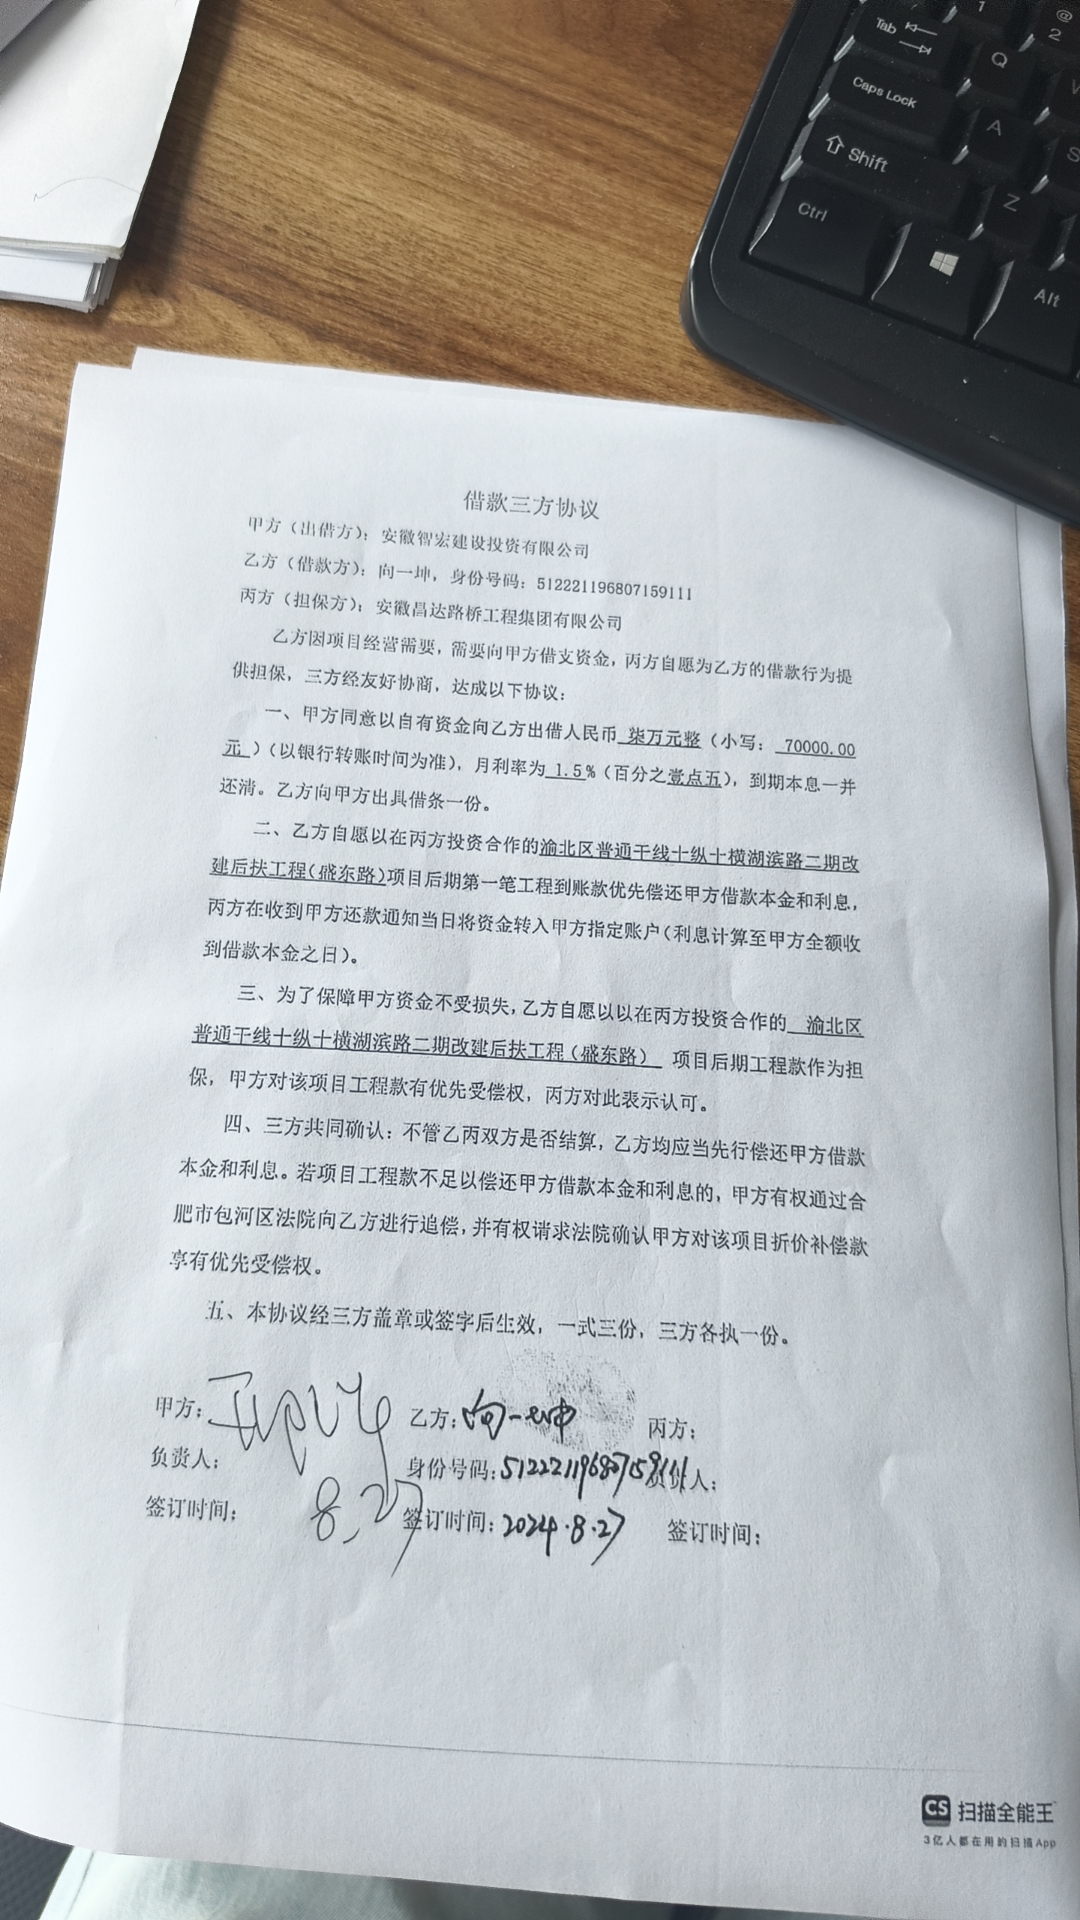 Tab
1
@
2
Q
Caps Lock
A
S
Shift
Z
Ctrl
Alt
借款三方协议
甲方（出借方）：安徽智宏建设投资有限公司
乙方（借款方）：向一坤，身份号码：512221196807159111
丙方（担保方）：安徽昌达路桥工程集团有限公司
乙方因项目经营需要，需要向甲方借支资金，丙方自愿为乙方的借款行为提
供担保，三方经友好协商，达成以下协议：
一、甲方同意以自有资金向乙方出借人民币 柒万元整（小写： 70000.00
元 ）（以银行转账时间为准），月利率为 1.5%（百分之壹点五），到期本息一并
还清。乙方向甲方出具借条一份。
二、乙方自愿以在丙方投资合作的渝北区普通干线十纵十横湖滨路二期改
建后扶工程（盛东路）项目后期第一笔工程到账款优先偿还甲方借款本金和利息，
丙方在收到甲方还款通知当日将资金转入甲方指定账户（利息计算至甲方全额收
到借款本金之日）。
三、为了保障甲方资金不受损失，乙方自愿以以在丙方投资合作的 渝北区
普通干线十纵十横湖滨路二期改建后扶工程（盛东路） 项目后期工程款作为担
保，甲方对该项目工程款有优先受偿权，丙方对此表示认可。
四、三方共同确认：不管乙丙双方是否结算，乙方均应当先行偿还甲方借款
本金和利息。若项目工程款不足以偿还甲方借款本金和利息的，甲方有权通过合
肥市包河区法院向乙方进行追偿，并有权请求法院确认甲方对该项目折价补偿款
享有优先受偿权。
五、本协议经三方盖章或签字后生效，一式三份，三方各执一份。
甲方： 乙方：向一坤 丙方：
负责人： 身份号码：512221196807159111 负责人：
签订时间： 8.27 签订时间：2024.8.27 签订时间：
CS 扫描全能王
3亿人都在用的扫描App